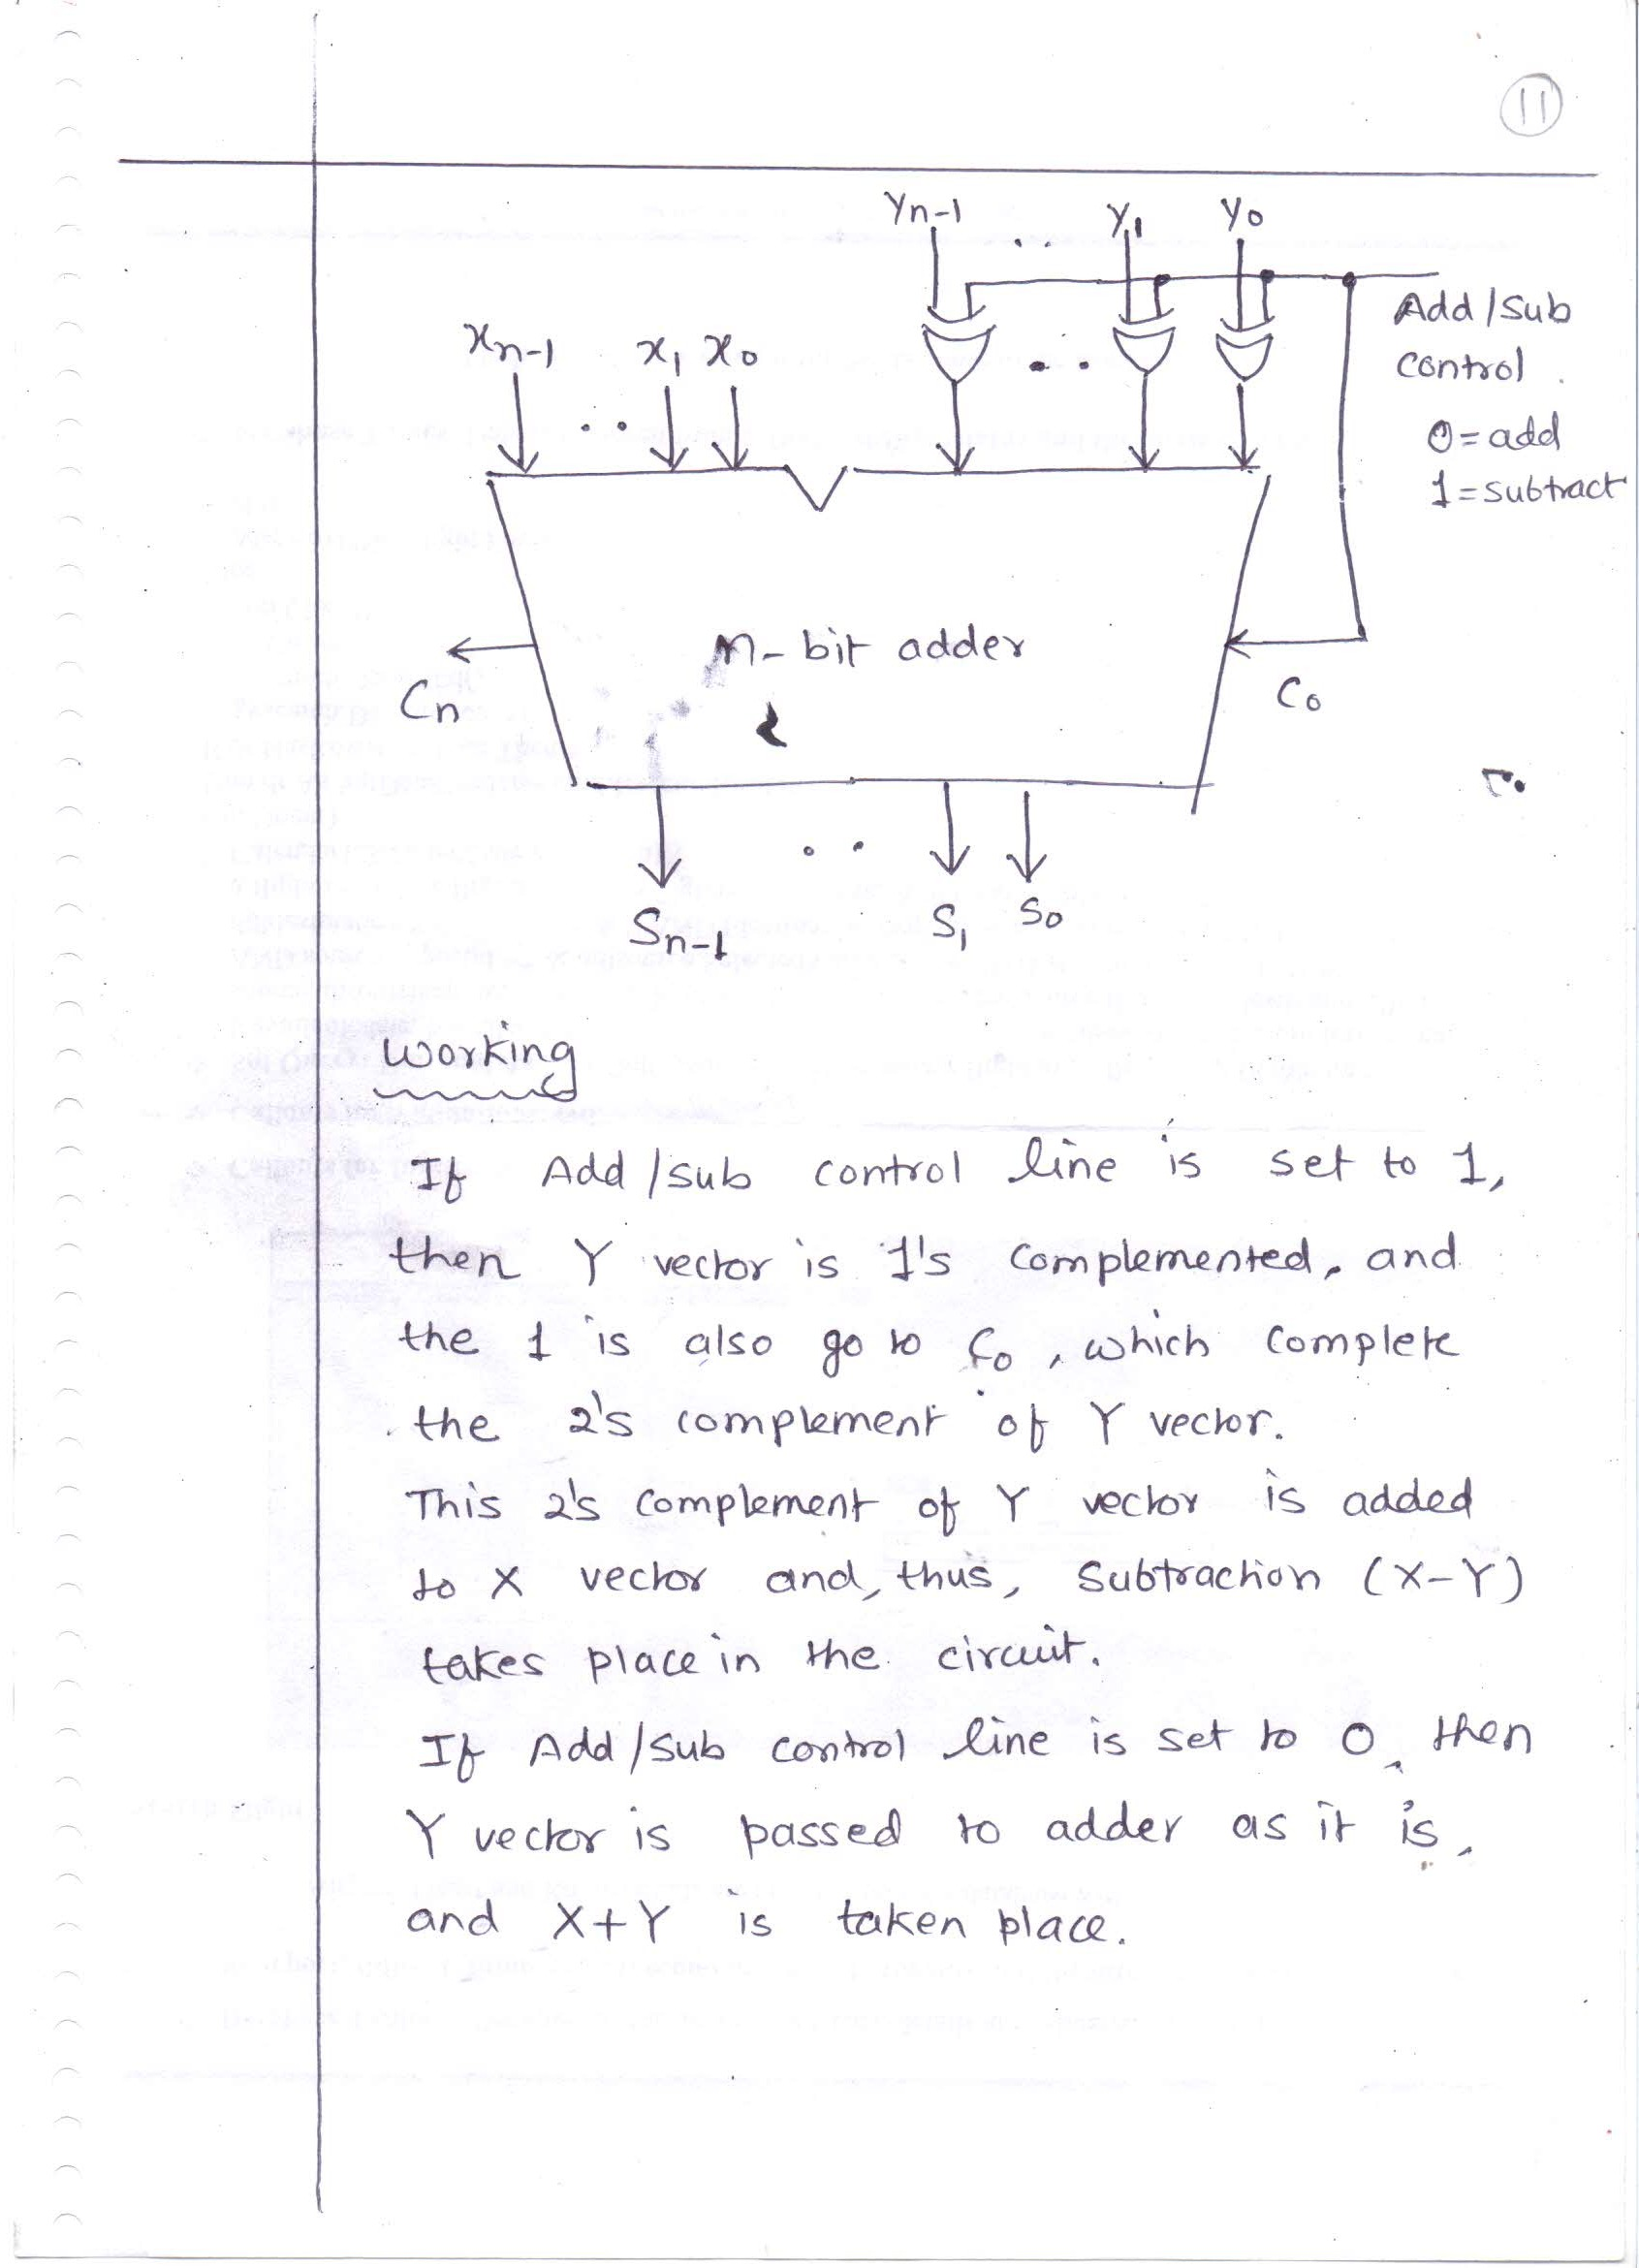 11
Yn-1 .. Y1 Y0
Xn-1 .. X1 X0
Add/Sub
control
0=add
1=subtract
n-bit adder
Cn
C0
Sn-1 .. S1 S0
Working
If Add/sub control line is set to 1,
then Y vector is 1's complemented, and
the 1 is also go to C0, which complete
the 2's complement of Y vector.
This 2's complement of Y vector is added
to X vector and, thus, subtraction (X-Y)
takes place in the circuit.
If Add/sub control line is set to 0, then
Y vector is passed to adder as it is,
and X+Y is taken place.